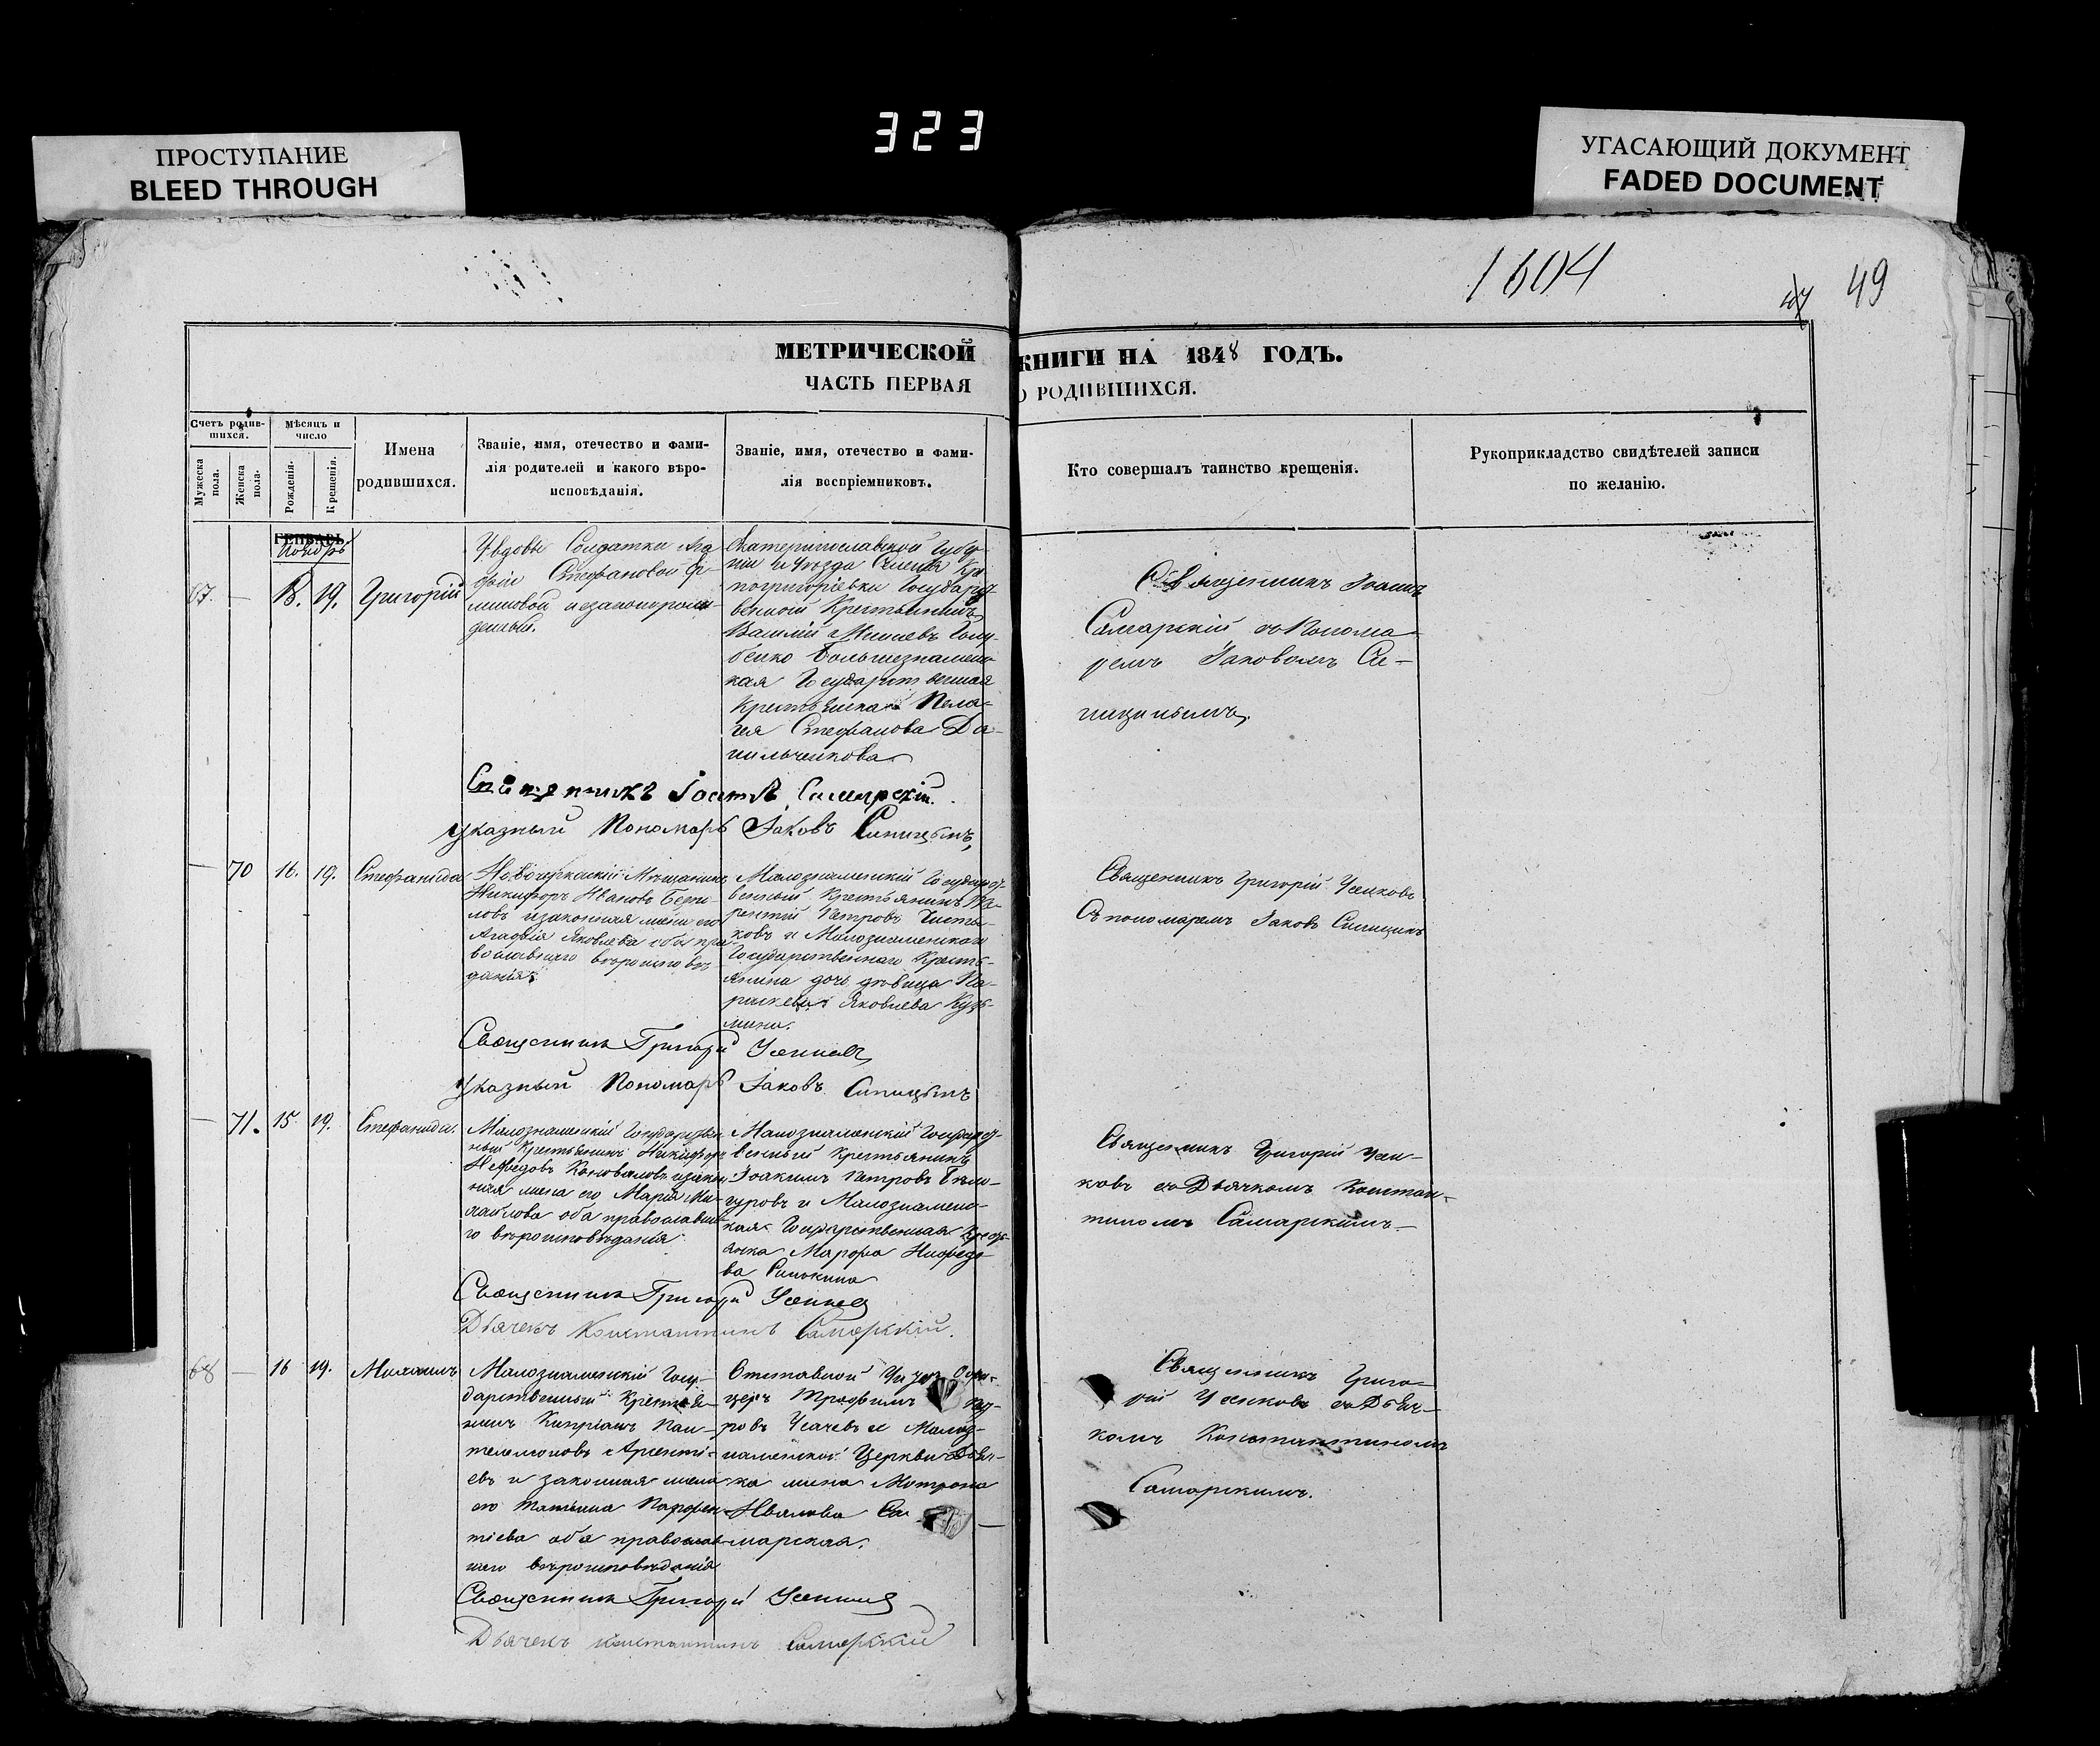 323
ПРОСТУПАНИЕ
BLEED THROUGH
УГАСАЮЩИЙ ДОКУМЕНТ
FADED DOCUMENT
1604
49
МЕТРИЧЕСКОЙ
ЧАСТЬ ПЕРВАЯ
КНИГИ НА 1848 ГОДЪ.
О РОДИВШИХСЯ.
Счетъ родив-
шихся.
Мужеска пола.
Женска пола.
Мѣсяцъ и
число
Рожденія.
Крещенія.
Имена
родившихся.
Званіе, имя, отечество и фами-
лія родителей и какого вѣро-
исповѣданія.
Званіе, имя, отечество и фами-
лія воспріемниковъ.
Кто совершалъ таинство крещенія.
Рукоприкладство свидѣтелей записи
по желанію.
ГЕНВАРЬ
Ноябрь
67. — 18. 19. Григорій
У вдовы Солдатки Ага
фіи Стефановой
незаконорож-
денный.
Екатеринославской Губер
ніи и уѣзда
Государст
венной Крестьянинъ
Василій Голу-
бенко Большезнаменс
кая Государственная
Крестьянка Пела-
гея Стефанова Да-
нильченкова
Священникъ Іоаннъ
Самарскій съ Понома
ремъ Іаковомъ Си-
ницинымъ.
Священникъ Іоаннъ Самарскій.
Указный Пономарь Іаковъ Синицынъ
— 70 16. 19. Стефанида
Мѣщанинъ
Никифоръ Ивановъ
ловъ и законная жена его
Агафія Яковлева оба пра
вославнаго вѣроисповѣ
данія.
Малознаменскій Государст-
венный Крестьянинъ
Петровъ
ковъ и Малознаменского
Государственнаго Кресть-
янина дочь дѣвица Па-
раскева Яковлева Кузь-
мина.
Священникъ Григорій Усенковъ
Съ пономаремъ Іаковъ Синицинъ
Священникъ Григорій Усенковъ
Указный Пономарь Іаковъ Синицынъ
— 71. 15. 19. Стефанида.
Малознаменскій Государствен
ный Крестьянинъ Никифоръ
Нефедовъ Коноваловъ и закон
ная жена его Марія Ми-
хайлова оба православна
го вѣроисповѣданія
Малознаменскій Государст-
венный Крестьянинъ
Іоакимъ Петровъ
и Малознаменс-
кая Государственная Кресть
янка Марфа
ва
Священникъ Григорій Усен-
ковъ съ Дьячкомъ Констан-
тиномъ Самарскимъ—
Священникъ Григорій Усенковъ
Дьячекъ Константинъ Самарскій.
68 — 16 19. Михаилъ
Малознаменскій Госу-
дарственный Крестья-
нинъ Кипріанъ Пан-
телемоновъ Арсенті-
евъ и законная жена
его Татьяна Парфен-
тіева оба православ
наго вѣроисповѣданія
Отставной Унтеръ Офи-
церъ Трофимъ
ровъ Усачевъ и Малоз-
наменской Церкви Дьяч-
ка жена Матрона
Иванова Са-
марская.
Священникъ Григо-
рій Усенковъ съ Дьяч-
комъ Константиномъ
Самарскимъ.
Священникъ Григорій Усенковъ
Дьячекъ Константинъ Самарскій